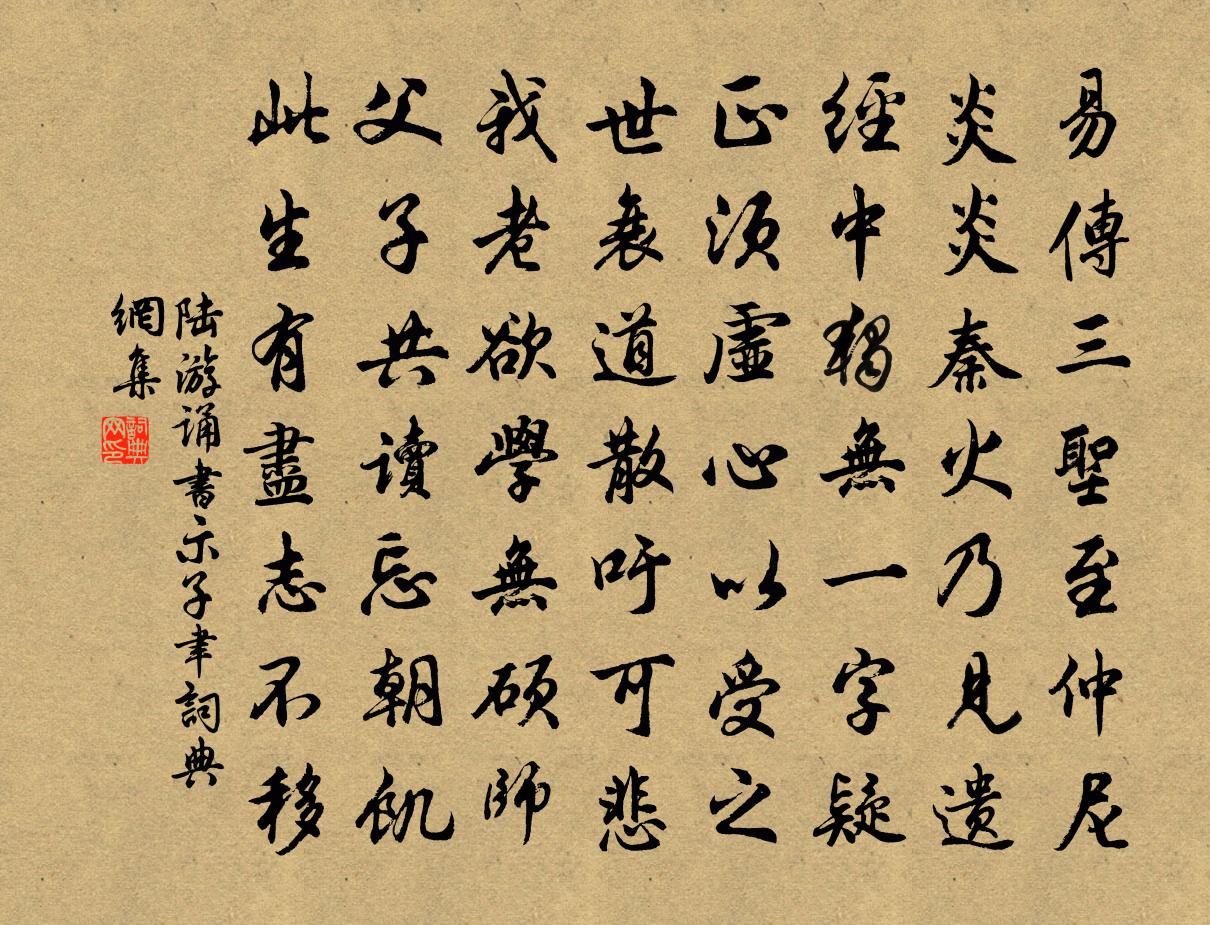 易傳三聖至仲尼
炎炎秦火乃見遺
經中獨無一字疑
正須虛心以受之
世衰道散吁可悲
我老欲學無碩師
父子共讀忘朝飢
此生有盡志不移
陸游誦書示子聿詞典
網集
詞典
网印